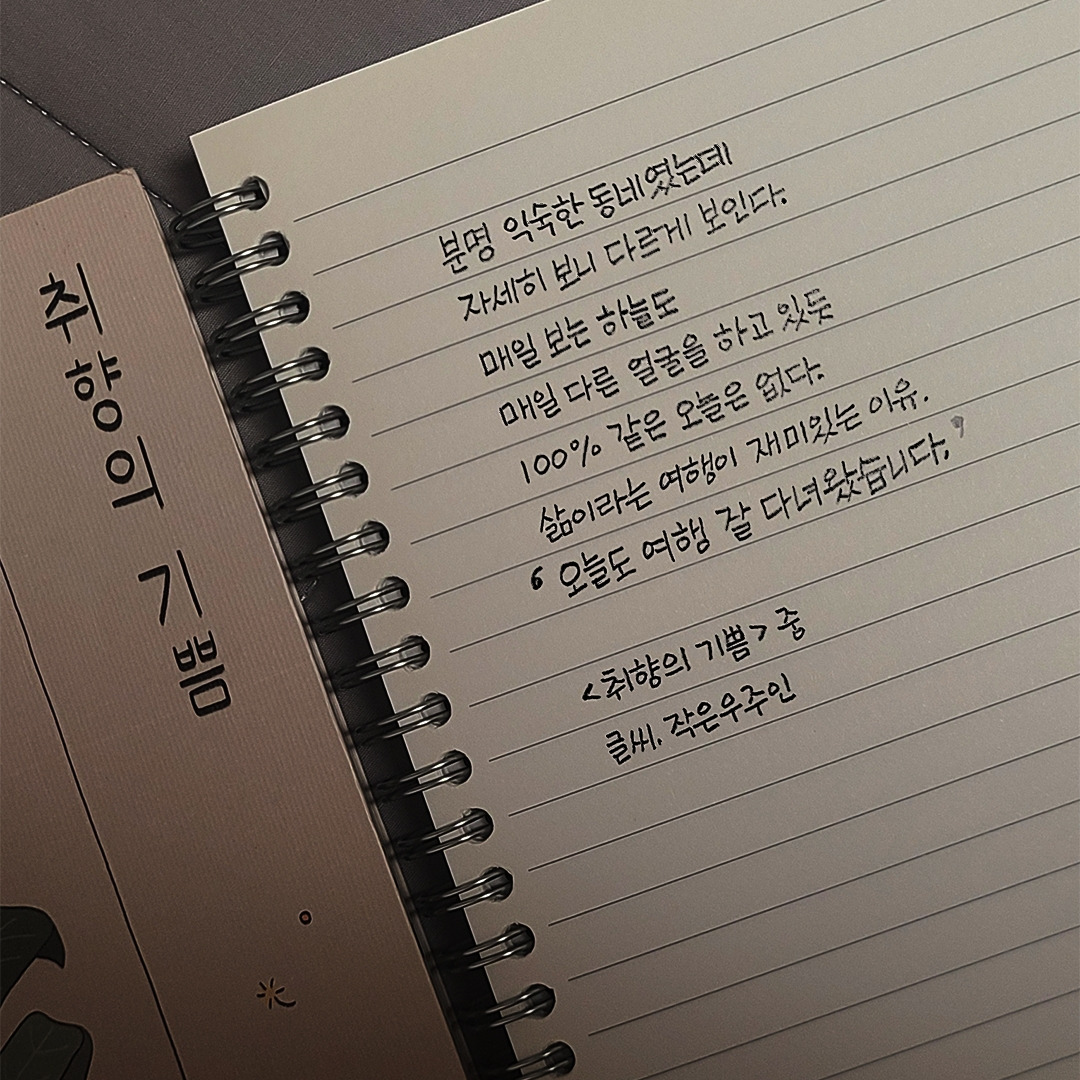 취향의 기쁨
분명 익숙한 동네였는데
자세히 보니 다르게 보인다.
매일 보는 하늘도
매일 다른 얼굴을 하고 있듯
100% 같은 오늘은 없다.
삶이라는 여행이 재미있는 이유.
‘오늘도 여행 잘 다녀왔습니다.’
<취향의 기쁨> 중
글씨. 작은우주인